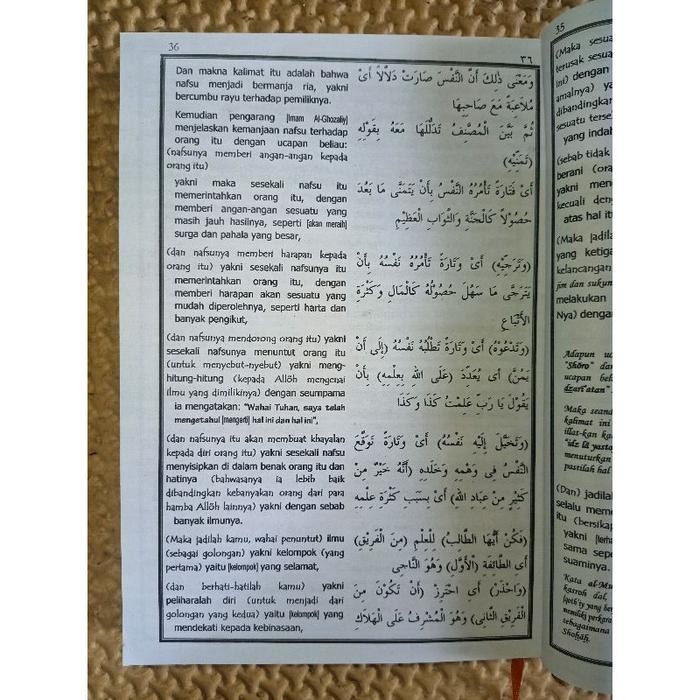 36
٣٦
Dan makna kalimat itu adalah bahwa
nafsu menjadi bermanja ria, yakni
bercumbu rayu terhadap pemiliknya.
Kemudian pengarang [Imam Al-Ghozaliy]
menjelaskan kemanjaan nafsu terhadap
orang itu dengan ucapan beliau:
(nafsunya memberi angan-angan kepada
orang itu)
yakni maka sesekali nafsu itu
memerintahkan orang itu, dengan
memberi angan-angan sesuatu yang
masih jauh hasilnya, seperti [akan meraih]
surga dan pahala yang besar,
(dan nafsunya memberi harapan kepada
orang itu) yakni sesekali nafsunya itu
memerintahkan orang itu, dengan
memberi harapan akan sesuatu yang
mudah diperolehnya, seperti harta dan
banyak pengikut,
(dan nafsunya mendorong orang itu) yakni
sesekali nafsunya menuntut orang itu
(untuk menyebut-nyebut) yakni meng-
hitung-hitung (kepada Allôh mengenai
ilmu yang dimilikinya) dengan seumpama
ia mengatakan: "Wahai Tuhan, saya telah
mengetahui [mengerti] hal ini dan hal ini",
(dan nafsunya itu akan membuat khayalan
kepada diri orang itu) yakni sesekali nafsu
menyisipkan di dalam benak orang itu dan
hatinya (bahwasanya ia lebih baik
dibandingkan kebanyakan orang dari para
hamba Allôh lainnya) yakni dengan sebab
banyak ilmunya.
(Maka jadilah kamu, wahai penuntut) ilmu
(sebagai golongan) yakni kelompok (yang
pertama) yaitu [kelompok] yang selamat,
(dan berhati-hatilah kamu) yakni
peliharalah diri (untuk menjadi dari
golongan yang kedua) yaitu [kelompok] yang
mendekati kepada kebinasaan,
وَمَعْنَى ذٰلِكَ أَنَّ النَّفْسَ صَارَتْ دَلَالًا أَىْ
مُلَاعَبَةً مَعَ صَاحِبِهَا
ثُمَّ بَيَّنَ الْمُصَنِّفُ تَدَلُّلَهَا مَعَهُ بِقَوْلِهِ
(تُمَنِّيْهِ)
أَىْ فَتَارَةً تَأْمُرُهُ النَّفْسُ بِأَنْ يَتَمَنَّى مَا بَعُدَ
حُصُوْلًا كَالْجَنَّةِ وَالثَّوَابِ الْعَظِيْمِ
(وَتُرَجِّيْهِ) أَىْ وَتَارَةً تَأْمُرُهُ نَفْسُهُ بِأَنْ
يَتَرَجَّى مَا سَهُلَ حُصُوْلُهُ كَالْمَالِ وَكَثْرَةِ
الْأَتْبَاعِ
(وَتَدْعُوْهُ) أَىْ وَتَارَةً تَطْلُبُهُ نَفْسُهُ (إِلَى أَنْ
يَمُنَّ) أَىْ يُعَدِّدَ (عَلَى اللهِ بِعِلْمِهِ) بِأَنْ
يَقُوْلَ يَا رَبِّ عَلِمْتُ كَذَا وَكَذَا
(وَتُخَيِّلُ إِلَيْهِ نَفْسُهُ) أَىْ وَتَارَةً تُوَقِّعُ
النَّفْسُ فِى وَهْمِهِ وَخَلَدِهِ (أَنَّهُ خَيْرٌ مِنْ
كَثِيْرٍ مِنْ عِبَادِ اللهِ) أَىْ بِسَبَبِ كَثْرَةِ عِلْمِهِ
(فَكُنْ أَيُّهَا الطَّالِبُ) لِلْعِلْمِ (مِنَ الْفَرِيْقِ)
أَىِ الطَّائِفَةِ (الْأَوَّلِ) وَهُوَ النَّاجِى
(وَاحْذَرْ) أَىِ احْتَرِزْ (أَنْ تَكُوْنَ مِنَ
الْفَرِيْقِ الثَّانِى) وَهُوَ الْمُشْرِفُ عَلَى الْهَلَاكِ
35
(Maka sesua
terusak sesua
ini) dengan
amalnya) ya
dibandingkan
sesuatu terse
yang indah
(sebab tidak
berani (ora
yakni men
kecuali den
atas hal it
(Maka jadila
yang ketiga
kelancangan
jim dan sukun
melakukan
Nya) dengan
Adapun uc
"Shôro" da
ucapan bel
dzarî'atan"
Maka seand
kalimat ini
illat-kan ka
"idz lâ yasta
menuturkan
pastilah hal
(Dan) jadilah
selalu meme
itu (bersikap
yakni [lerha
sama sepe
suaminya.
Kata al-Mu
kasroh dal,
memiliki perkara
sebagaimana
Shohâh.